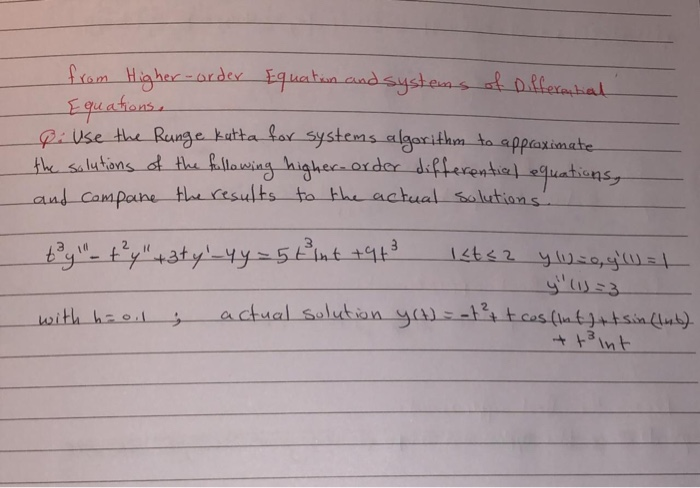 from Higher-order Equation and systems of Differential
Equations.
Q: Use the Runge Kutta for systems algorithm to approximate
the solutions of the following higher-order differential equations,
and compare the results to the actual solutions.
t³y''' - t²y'' + 3ty' - 4y = 5t³lnt + 9t³ 1≤t≤2 y(1)=0, y'(1)=1
y''(1)=3
with h=0.1 ; actual solution y(t) = -t² + t cos(lnt) + t sin(lnt)
+ t³ lnt